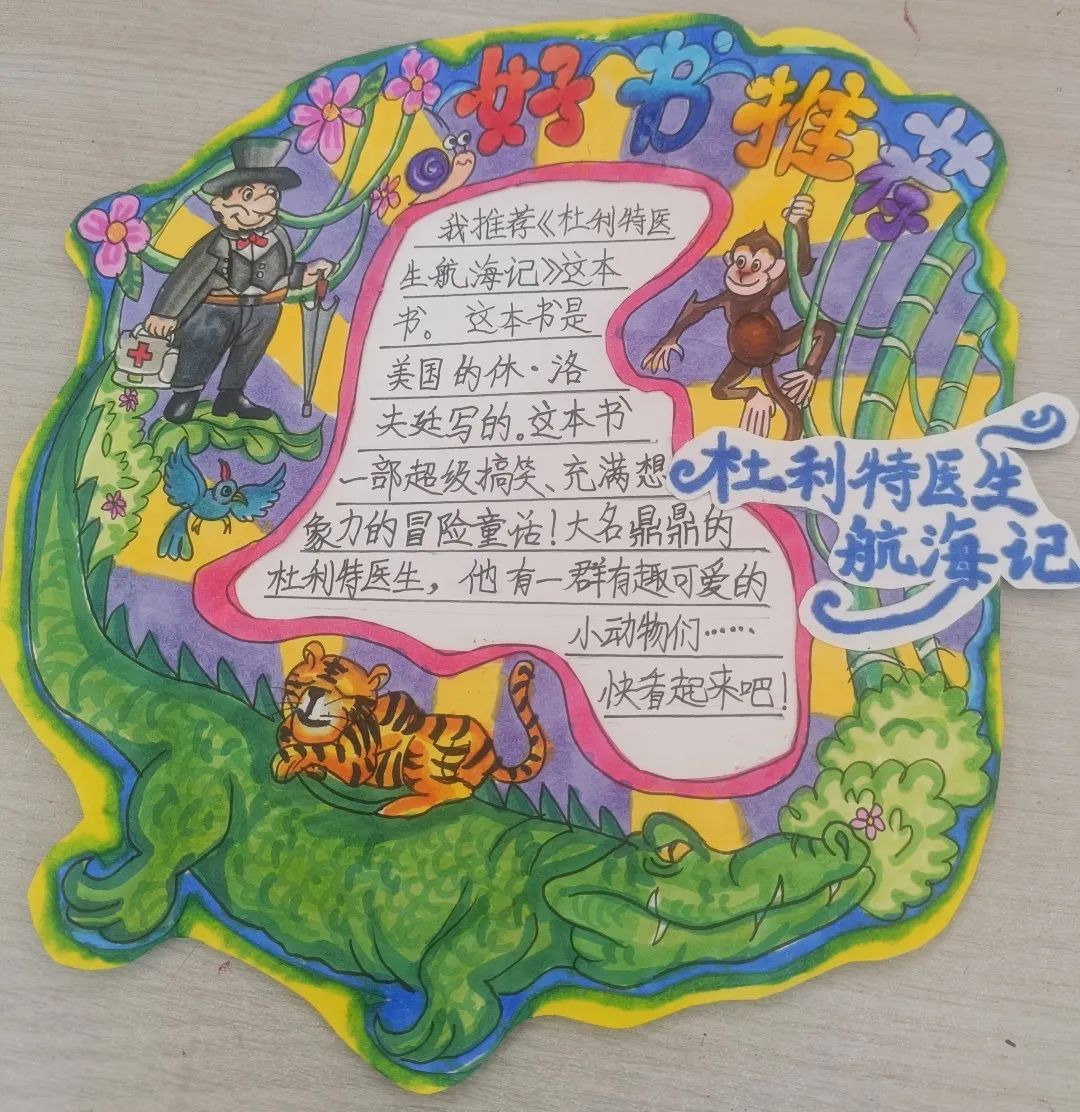 好书推荐
我推荐《杜利特医
生航海记》这本
书。这本书是
美国的休·洛
夫廷写的。这本书
一部超级搞笑、充满想
象力的冒险童话！大名鼎鼎的
杜利特医生，他有一群有趣可爱的
小动物们……
快看起来吧！
杜利特医生
航海记